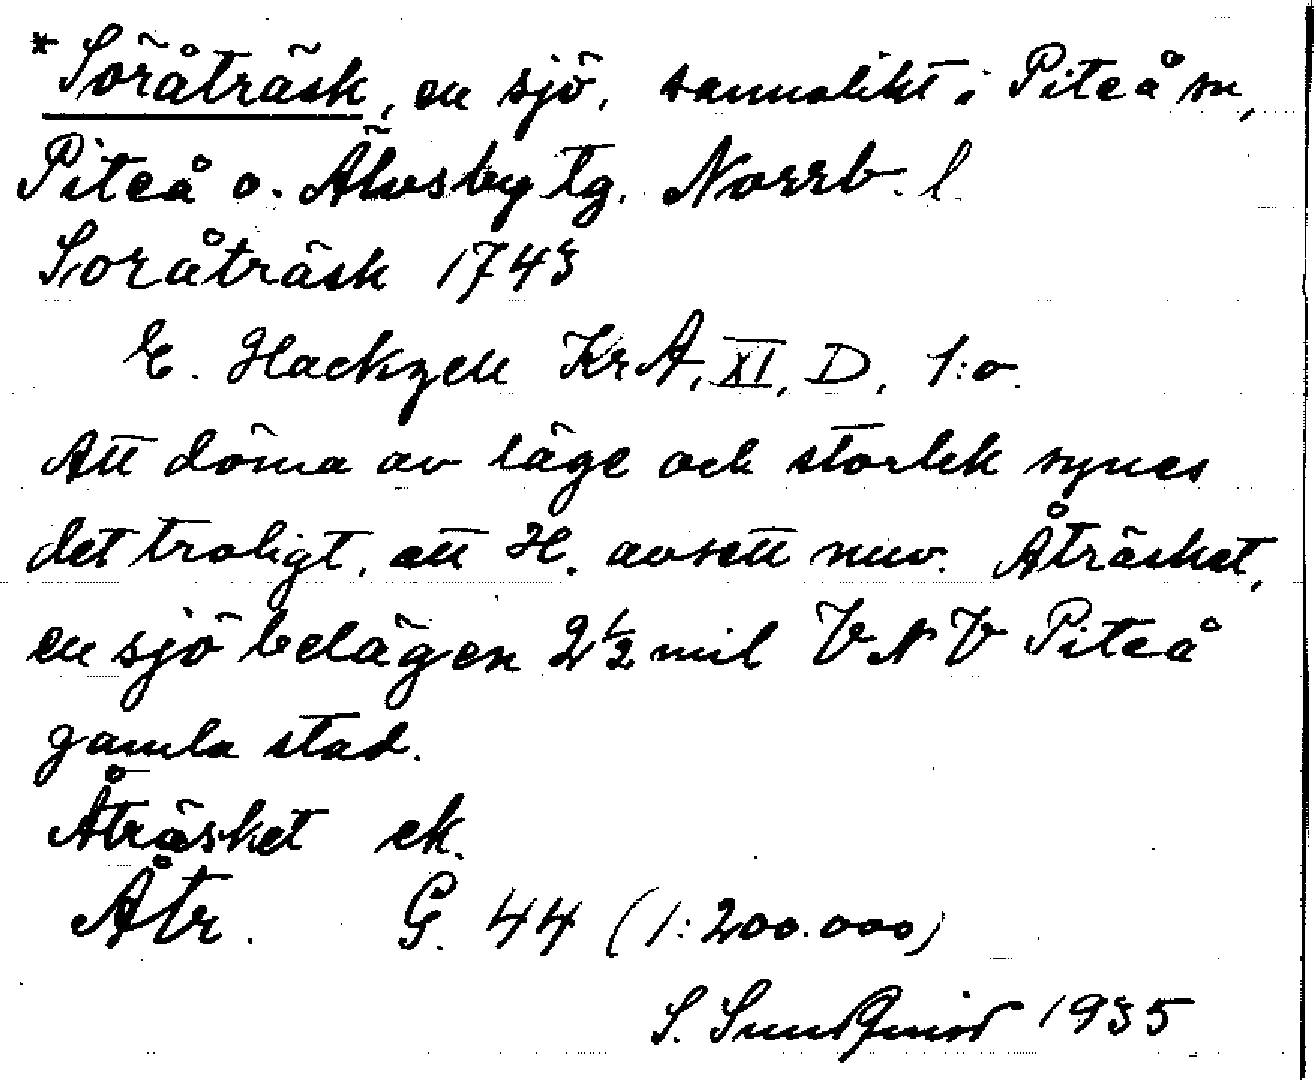 *Söråträsk, en sjö, sannolikt i Piteå sn,
Piteå o. Älvsby tg. Norrb. l.
Soråträsk 1743
E. Hackzell KrA, XI, D, 1:o.
Att döma av läge och storlek synes
det troligt, att H. avsett nuv. Åträsket,
en sjö belägen 2½ mil VNV Piteå
gamla stad.
Åträsket ek.
Åtr. G. 44 (1:200.000)
S. Sundquist 1935